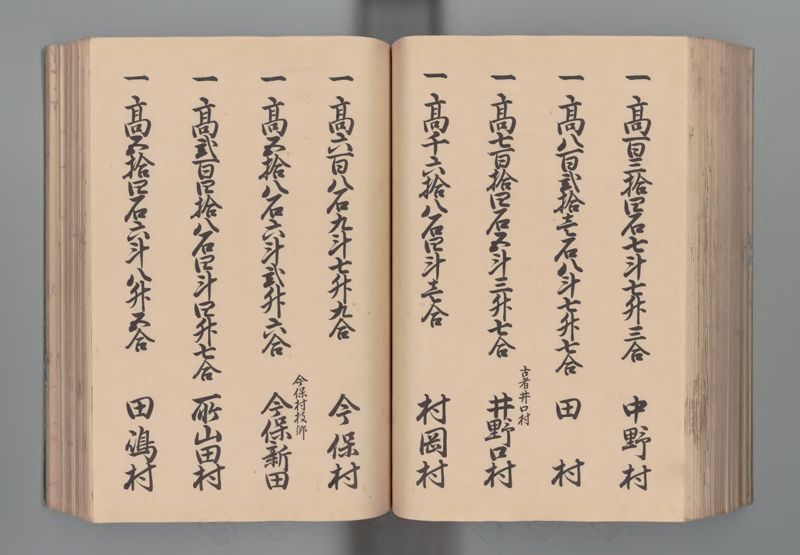 一 髙百三拾四石七斗七升三合 中野村
一 髙八百弐拾壱石八斗七升七合 田村
古者井口村
一 髙七百拾四石五斗三升七合 井野口村
一 髙千六拾八石四斗壱合 村岡村
一 髙六百八石九斗七升九合 今保村
今保村枝郷
一 髙五拾八石六斗弐升六合 今保新田
一 髙弐百四拾八石四斗四升七合 所山田村
一 髙五拾四石六斗八升五合 田嶋村